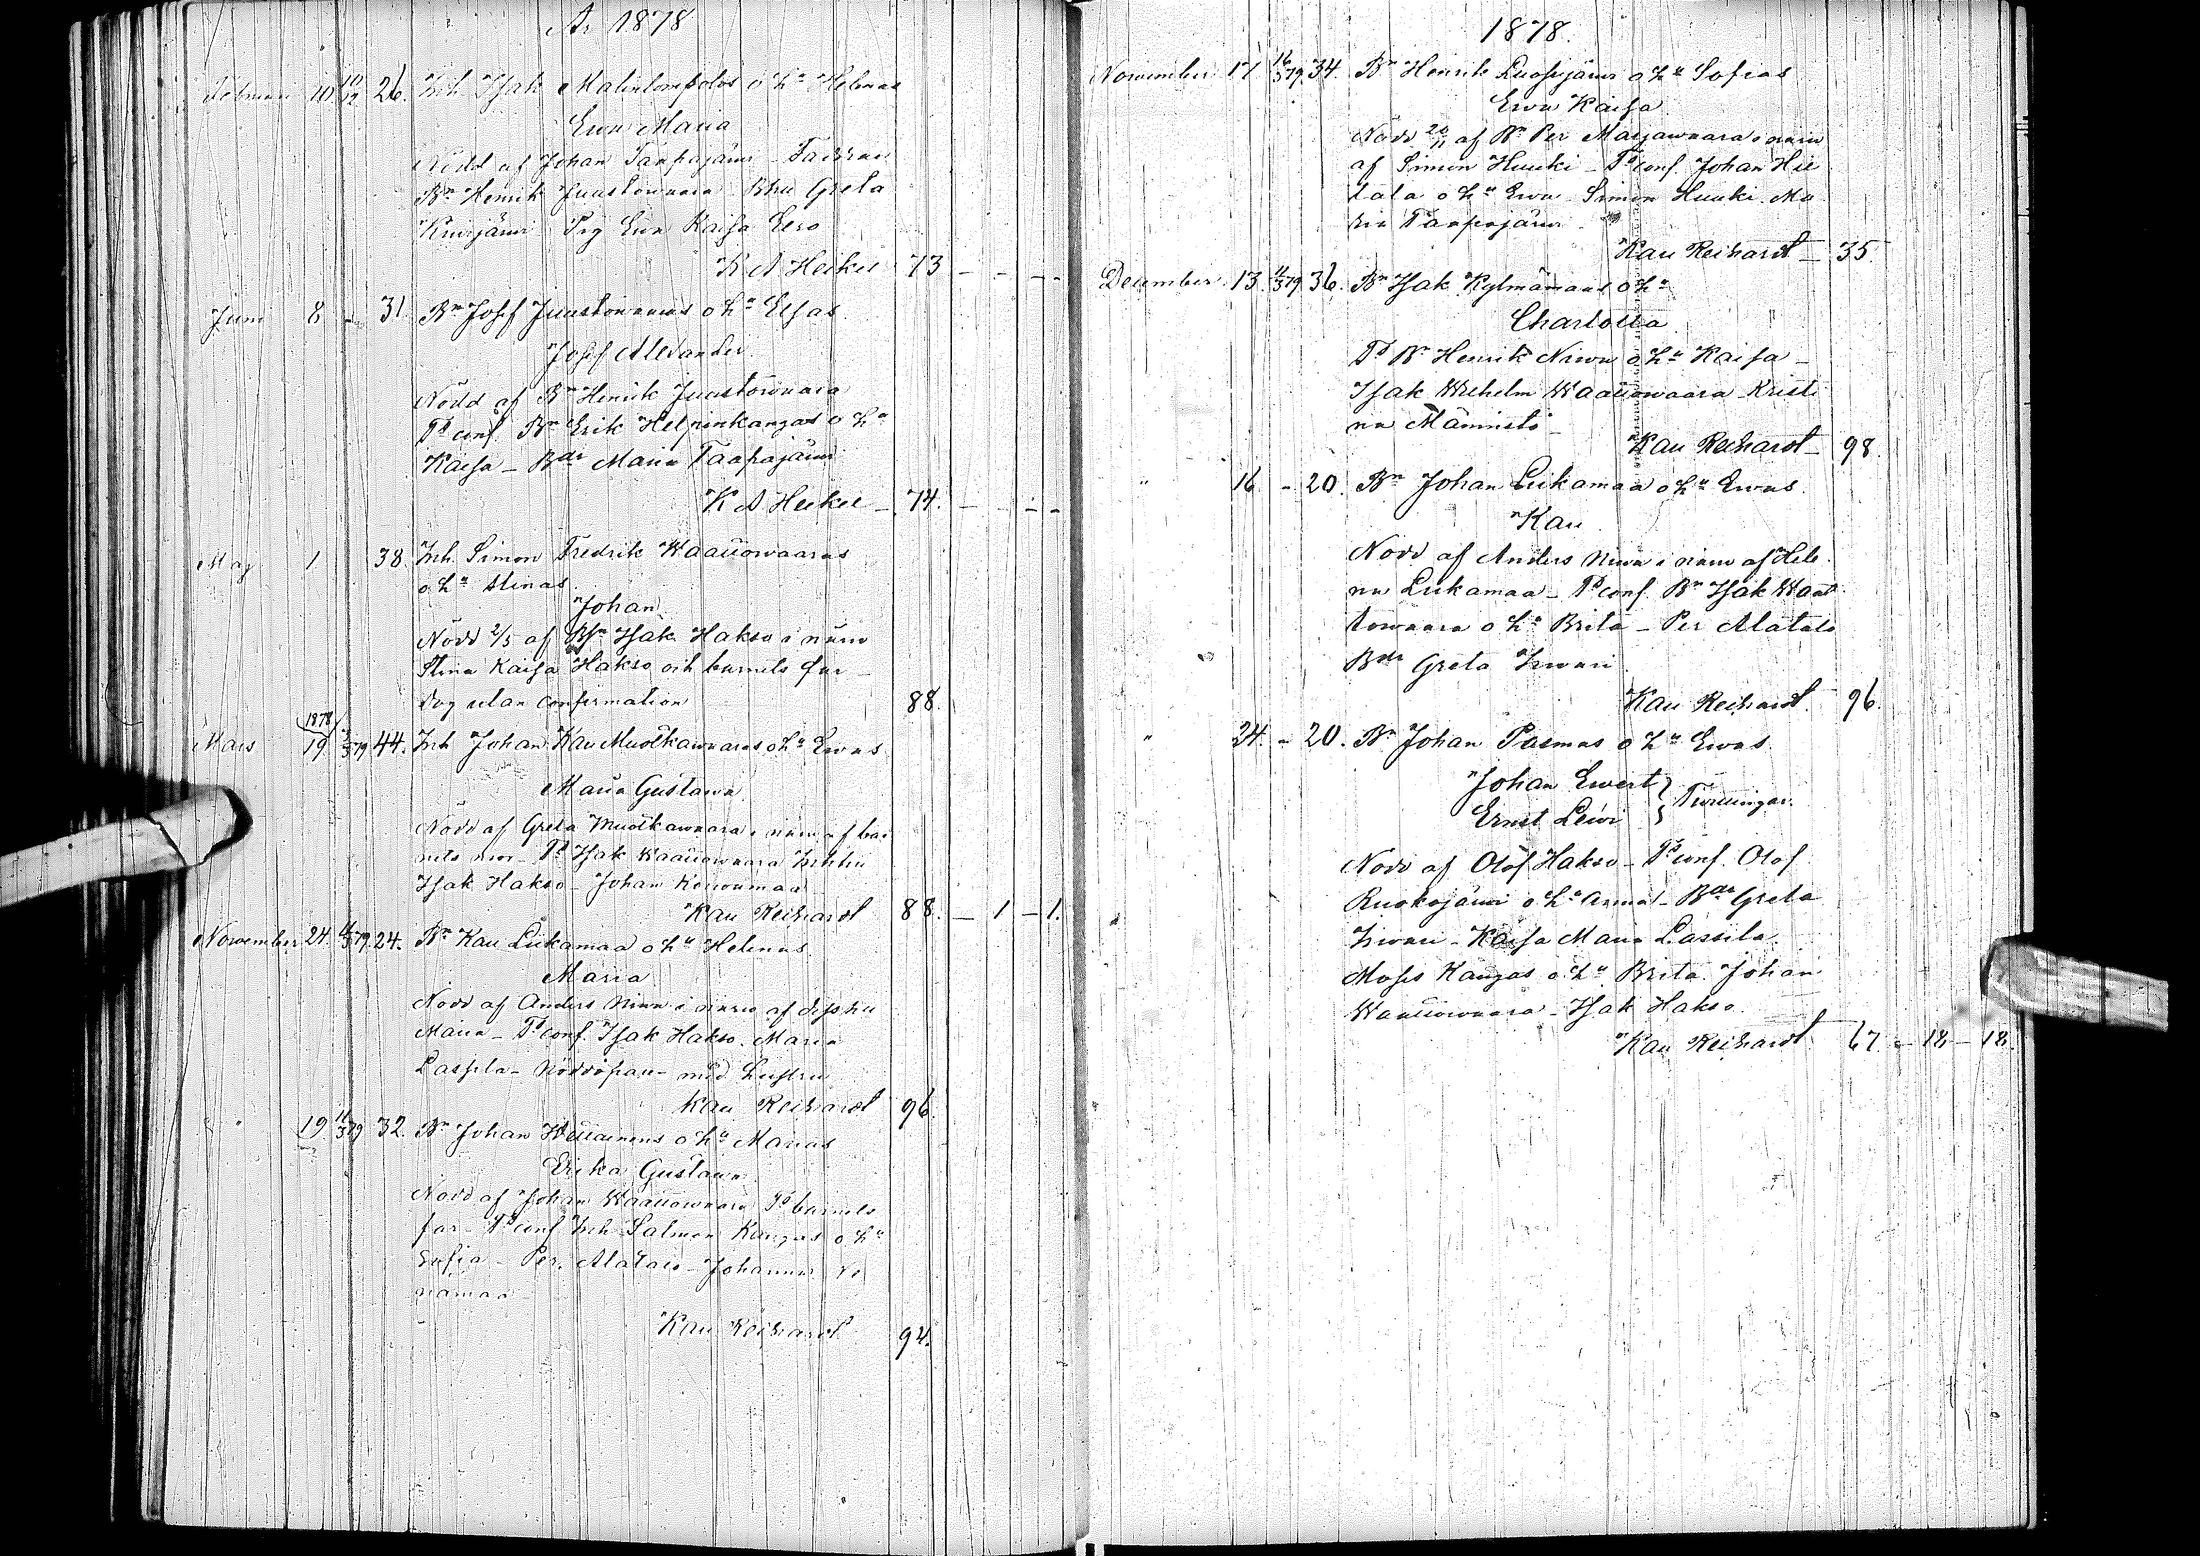 År 1878
Februari 10 10/12 26. Inh. Isak Malinlompolos o h:u Helenas
Ewa Maria
Nödd af Johan Taapajärvi - Faddrar
B:n Henrik Juustowaara B:hu Greta
Kuerjärvi Pig Ewa Kaisa Eero
K A Heikel 73 - - - -
Juni 8 - 31. B:n Josef Juustowaaras o h:u Elsas
Josef Alexander
Nödd af B:n Henrik Juustowaara
Td conf. B:n Erik Helpinkangas o h:u
Kaisa - B:dr Maria Taapajärvi
K A Heikel - 74. - - - -
Maj 1 38. Inh. Simon Fredrik Waattowaaras
o h:u Stinas
Johan
Nödd 2/5 af B:n Isak Hakso i närv
Stina Kaisa Hakso och barnets far -
dog utan confirmation 88.
1878
Mars 19 3/79 44. Inh Johan Karl Muotkawaaras o h:u Ewas
Maria Gustava
Nödd af Greta Muotkawaara i närv af bar
nets mor - Td Isak Waattowaara
Isak Hakso - Johan
Karl Reihardt 88. - 1 - 1.
November 24. 11/3 79 24. B:n Karl Liikamaa o h:u Helenas
Maria
Nödd af Anders Niwa i närv af
Maria - Td conf. Isak Hakso. Maria
Lassila - Nöddöpar - med
Karl Reihardt 96.
" 19 11/3 79 32. B:n Johan o h:u Marias
Erika Gustava
Nödd af Johan Waattowaara Td barnets
far - Td conf Inh Salmon Kangas o h:u
Sofia - Per Alatalo - Johanna
Karl Reihardt 94.
1878.
November 17 16/3 79. 34. B:n Henrik Luosujärvis o h:u Sofias
Ewa Kaisa
Nödd 20/11 af B:n Per Marjawaara i närv
af Simon Huuki - Td conf. Johan Hie
tala o h:u Ewa Simon Huuki. Ma
ria Taapajärvi -
Karl Reihardt - 35.
December 13. 11/3 79 36. B:n Isak Kylmämaas o h:u
Charlotta
Td B:n Henrik Niwa o h:u Kaisa -
Isak Wilhelm Waattowaara Kristi
na Männistö -
Karl Reihardt - 98.
" 16 - 20. B:n Johan Liikamaa o h:u Ewas.
Karl
Nödd af Anders Niwa i närv af Hele
na Liikamaa - Td conf. B:n Isak Waat
towaara o h:u Brita - Per Alatalo
B:dr Greta Iswari
Karl Reihardt. 96.
" 24. - 20. B:n Johan Palmas o h:u Ewas.
Johan Ewert } Twillingar.
Ernst Lewi
Nödd af Olof Hakso - Td conf. Olof
Ruokojärvi o h:u Anna - B:dr Greta
Iswari - Kaisa Maria Lassila.
Moses Kangas o h:u Brita Johan
Waattowaara - Isak Hakso.
Karl Reihardt. 67. - 18 - 18.